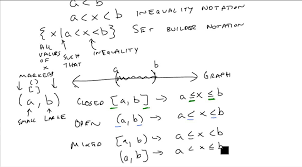 a < b
a < x < b INEQUALITY NOTATION
{x | a < x < b} SET BUILDER NOTATION
ALL VALUES OF X
SUCH THAT
INEQUALITY
MARKERS
( )
[ ]
a b
GRAPH
(a, b)
SMALL LARGE
CLOSED [a, b] → a ≤ x ≤ b
OPEN (a, b) → a < x < b
MIXED [a, b) → a ≤ x < b
(a, b] → a < x ≤ b